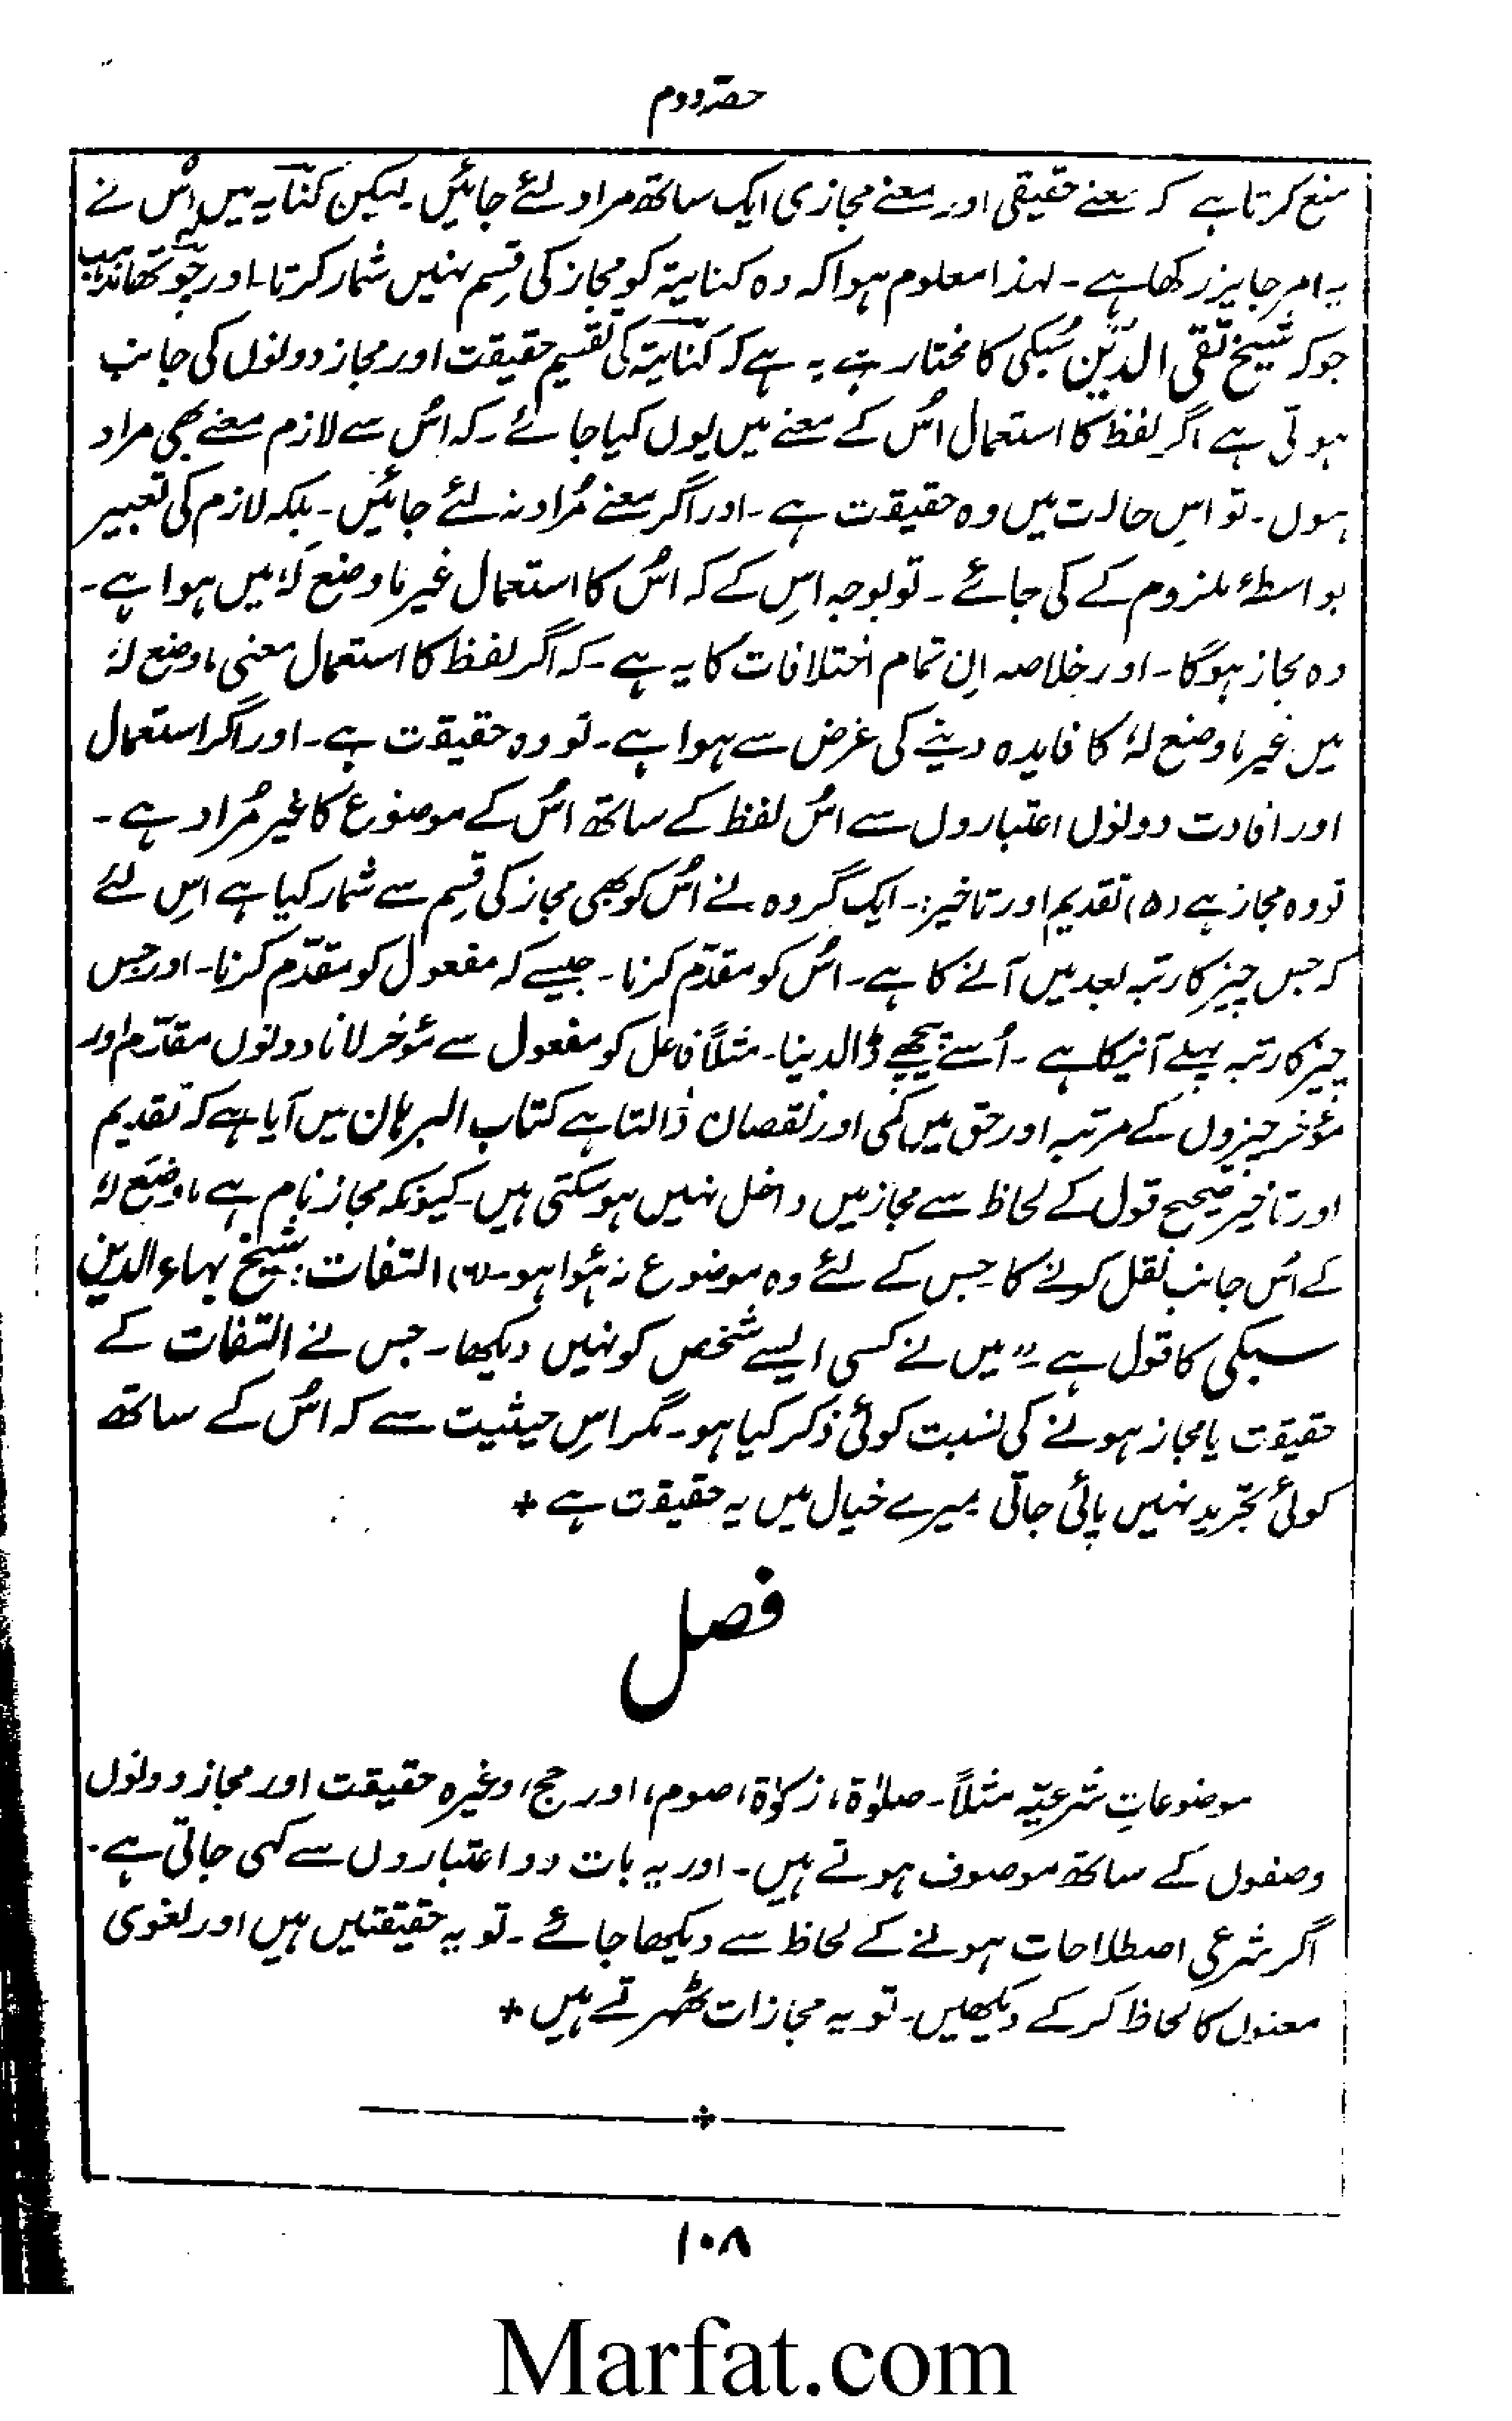 حصہ دوم
منع کرتا ہے کہ معنے حقیقی اور معنے مجازی ایک ساتھ مراد لئے جائیں۔ لیکن کنایہ میں اُس نے
یہ امر جایز رکھا ہے۔ لہذا معلوم ہوا کہ وہ کنایۃ کو مجاز کی قِسم نہیں شمار کرتا۔ اور چوتھا مذہب
جو کہ شیخ تقی الدّین سُبکی کا مختار ہے یہ ہے کہ کنایۃ کی تقسیم حقیقت اور مجاز دونوں کی جانب
ہوتی ہے اگر لفظ کا استعمال اُس کے معنے میں یوں کیا جائے۔ کہ اُس سے لازم معنے بھی مراد
ہوں۔ تو اِس حالت میں وہ حقیقت ہے۔ اور اگر معنے مُراد نہ لئے جائیں۔ بلکہ لازم کی تعبیر
بواسطۂ ملزوم کے کی جائے۔ تو بوجہ اِس کے کہ اُس کا استعمال غیر ما وضع لہٗ میں ہوا ہے۔
وہ مجاز ہوگا۔ اور خلاصہ اِن تمام اختلافات کا یہ ہے۔ کہ اگر لفظ کا استعمال معنی ما وضع لہٗ
میں غیر ما وضع لہٗ کا فایدہ دینے کی غرض سے ہوا ہے۔ تو وہ حقیقت ہے۔ اور اگر استعمال
اور افادت دونوں اعتباروں سے اُس لفظ کے ساتھ اُس کے موضوع کا غیر مُراد ہے۔
تو وہ مجاز ہے (۵) تقدیم اور تاخیر:۔ ایک گروہ نے اُس کو بھی مجاز کی قِسم سے شمار کیا ہے اِس لئے
کہ جس چیز کا رتبہ بعد میں آنے کا ہے۔ اُس کو مقدّم کرنا۔ جیسے کہ مفعول کو مقدّم کرنا۔ اور جس
چیز کا رتبہ پہلے آنیکا ہے۔ اُسے پیچھے ڈالدینا۔ مثلاً فاعل کو مفعول سے مؤخر لانا دونوں مقدّم اور
مؤخر چیزوں کے مرتبہ اور حق میں کمی اور نقصان ڈالتا ہے کتاب البرہان میں آیا ہے کہ تقدیم
اور تاخیر صحیح قول کے لحاظ سے مجاز میں داخل نہیں ہوسکتی ہیں۔ کیونکہ مجاز نام ہے ما وضع لہٗ
کے اُس جانب نقل کرنے کا جس کے لئے وہ موضوع نہ ہُوا ہو۔ (۶) التفات: شیخ بہاء الدین
سبکی کا قول ہے۔ "میں نے کسی ایسے شخص کو نہیں دیکھا۔ جس نے التفات کے
حقیقت یا مجاز ہونے کی نسبت کوئی ذکر کیا ہو۔ مگر اِس حیثیت سے کہ اُس کے ساتھ
کوئی تجرید نہیں پائی جاتی میرے خیال میں یہ حقیقت ہے +
فصل
موضوعاتِ شرعیّہ مثلاً۔ صلوٰۃ، زکوٰۃ، صوم، اور حج، وغیرہ حقیقت اور مجاز دونوں
وصفوں کے ساتھ موصوف ہوتے ہیں۔ اور یہ بات دو اعتباروں سے کہی جاتی ہے۔
اگر شرعی اصطلاحات ہونے کے لحاظ سے دیکھا جائے۔ تو یہ حقیقتیں ہیں اور لغوی
معنوں کا لحاظ کر کے دیکھیں۔ تو یہ مجازات ٹھہرتے ہیں +
۱۰۸
Marfat.com